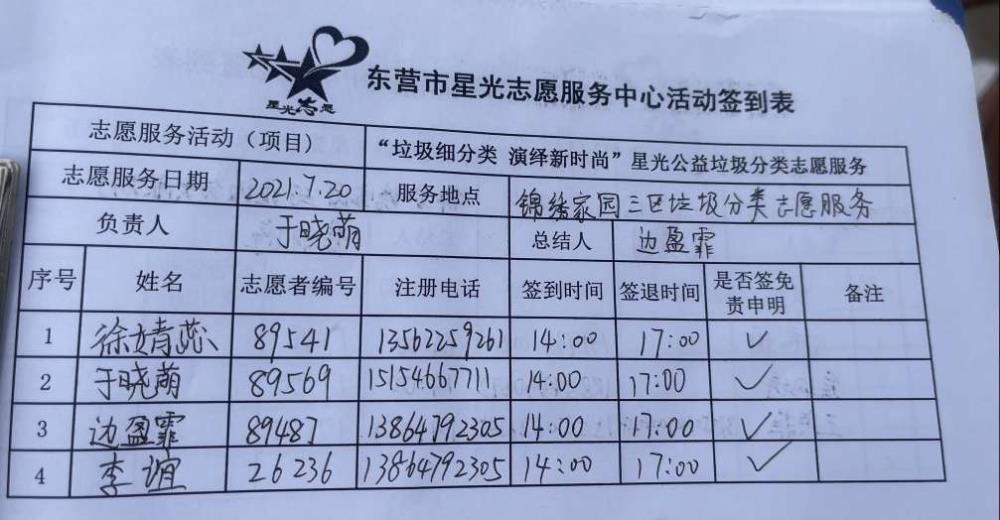 星光志愿
东营市星光志愿服务中心活动签到表
志愿服务活动（项目） “垃圾细分类 演绎新时尚”星光公益垃圾分类志愿服务
志愿服务日期 2021.7.20 服务地点 锦绣家园三区垃圾分类志愿服务
负责人 于晓萌 总结人 边盈霏
序号 姓名 志愿者编号 注册电话 签到时间 签退时间 是否签免责申明 备注
1 徐婧蕊 89541 13562259261 14:00 17:00 ✓
2 于晓萌 89569 15154667711 14:00 17:00 ✓
3 边盈霏 89487 13864792305 14:00 17:00 ✓
4 李谊 26236 13864792305 14:00 17:00 ✓